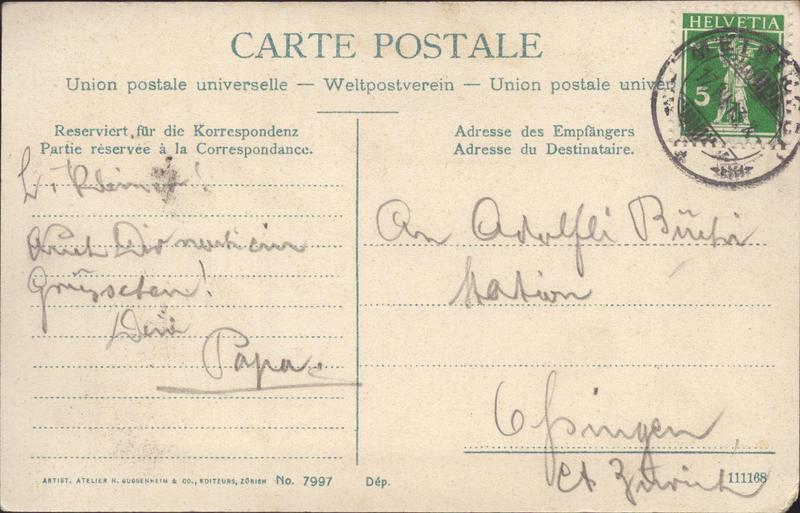 CARTE POSTALE
Union postale universelle — Weltpostverein — Union postale univer
HELVETIA
5
Reserviert für die Korrespondenz
Partie réservée à la Correspondance.
Adresse des Empfängers
Adresse du Destinataire.
L. Kleiner!
Auch Dir noch ein
Grüsschen!
Dein
Papa.
An Adolfli Büchi
Station
Ossingen
Ct Zürich
ARTIST. ATELIER H. GUGGENHEIM & CO., EDITEURS, ZÜRICH No. 7997 Dép. 111168